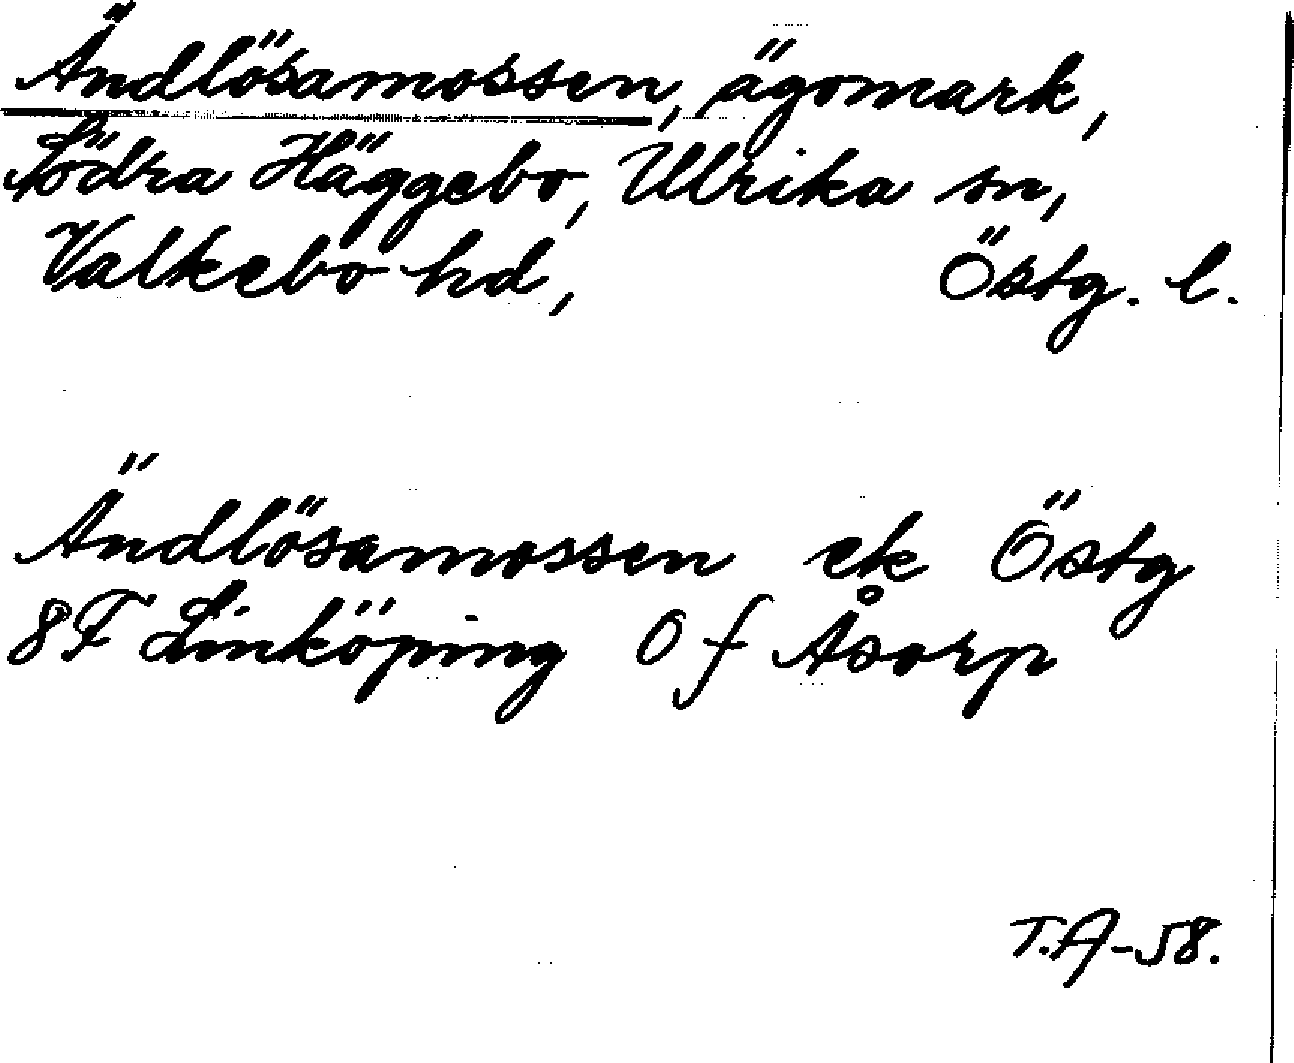 Ändlösamossen, ägomark,
Södra Häggebo, Ulrika sn,
Valkebo hd, Östg. l.
Ändlösamossen ek Östg
8F Linköping 0 f Åsorp
T.A-58.